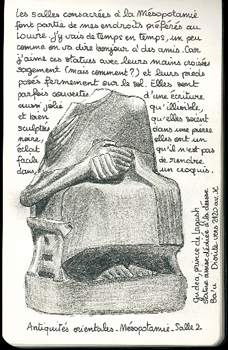 Les salles consacrées à la Mésopotamie
font partie de mes endroits préférés au
Louvre. J'y vais de temps en temps, un peu
comme on va dire bonjour à des amis. Car
j'aime ces statues avec leurs mains croisées
sagement (mais comment?) et leurs pieds
posés fermement sur le sol. Elles sont
parfois couvertes d'une écriture
aussi jolie qu'illisible,
et bien qu'elles soient
sculptées dans une pierre
noire, elles ont un
éclat qu'il n'est pas
facile de rendre,
dans un croquis.
Gudea, prince de Lagash
statue assise dédiée à la déesse
Ba'u Diorite vers 2120 av. JC
Antiquités orientales - Mésopotamie - Salle 2